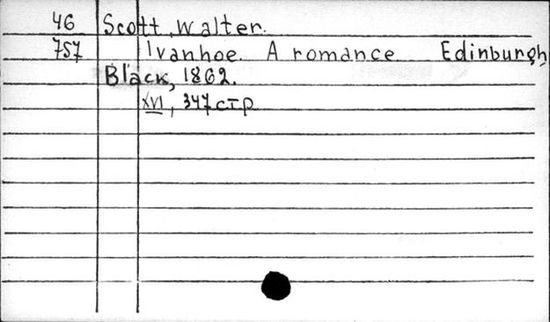 46 Scott, Walter.
757 Ivanhoe. A romance Edinburgh,
Black, 1862.
XVI, 347 стр